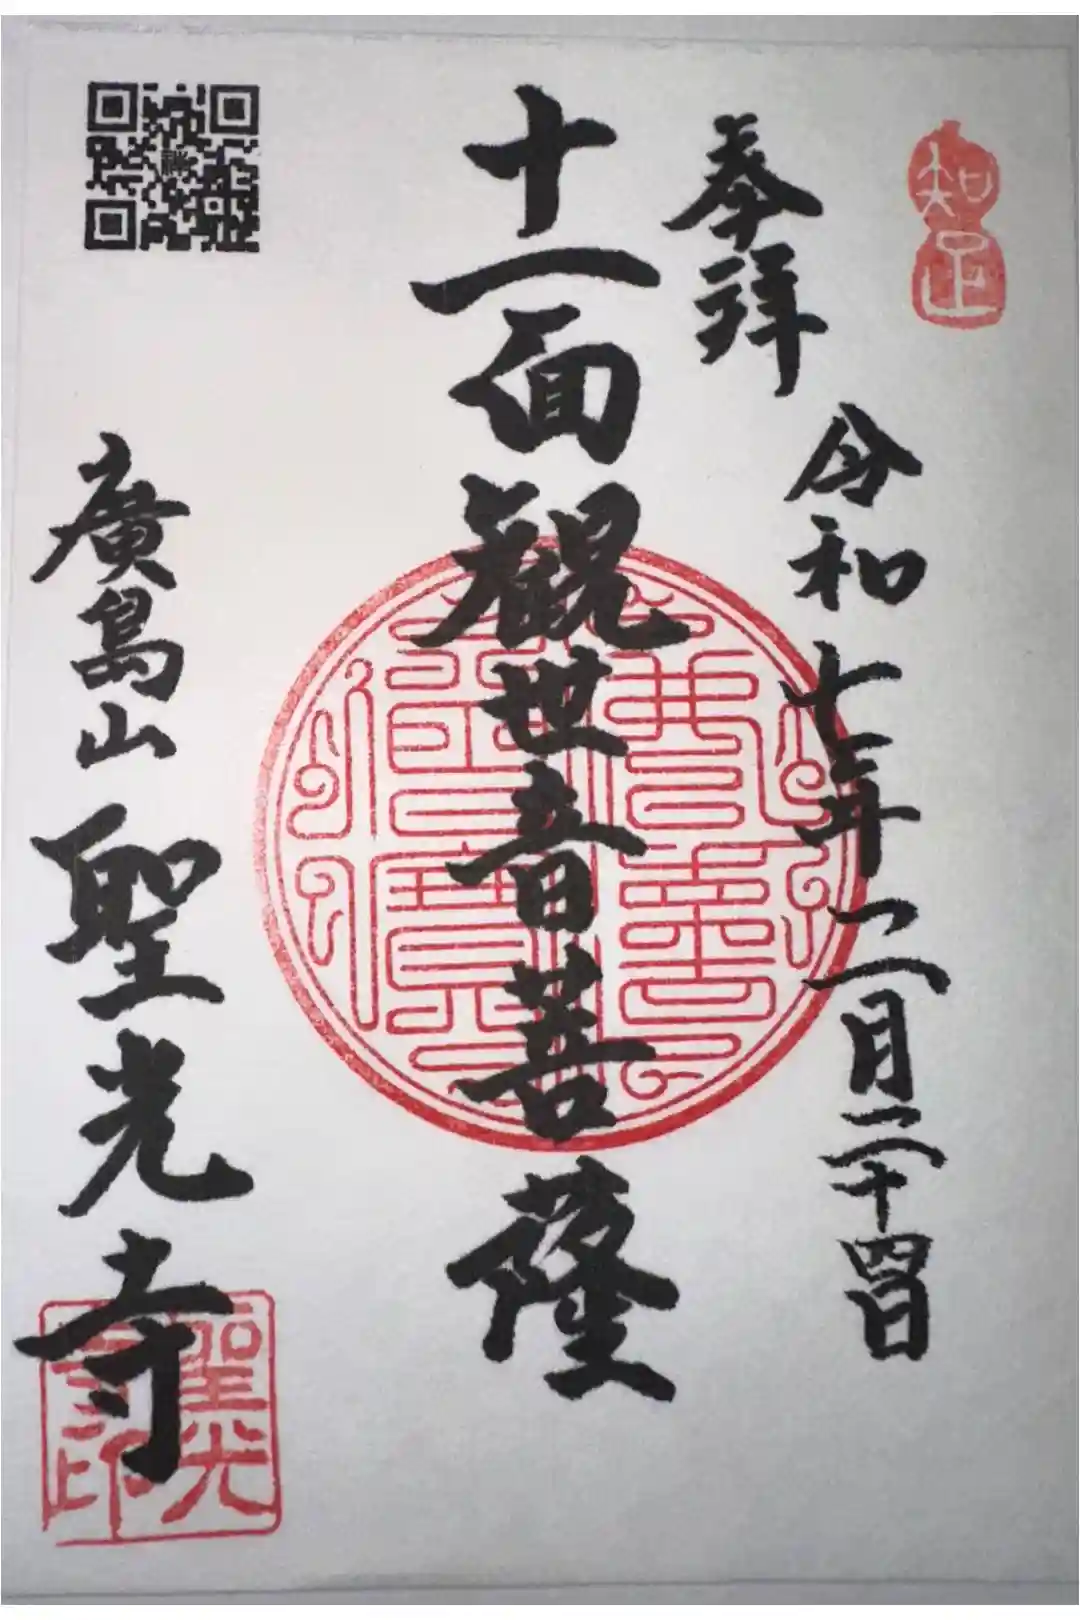 知足
奉拝
令和七年一二月二十四日
十一面観世音菩薩
廣島山 聖光寺
聖光寺印